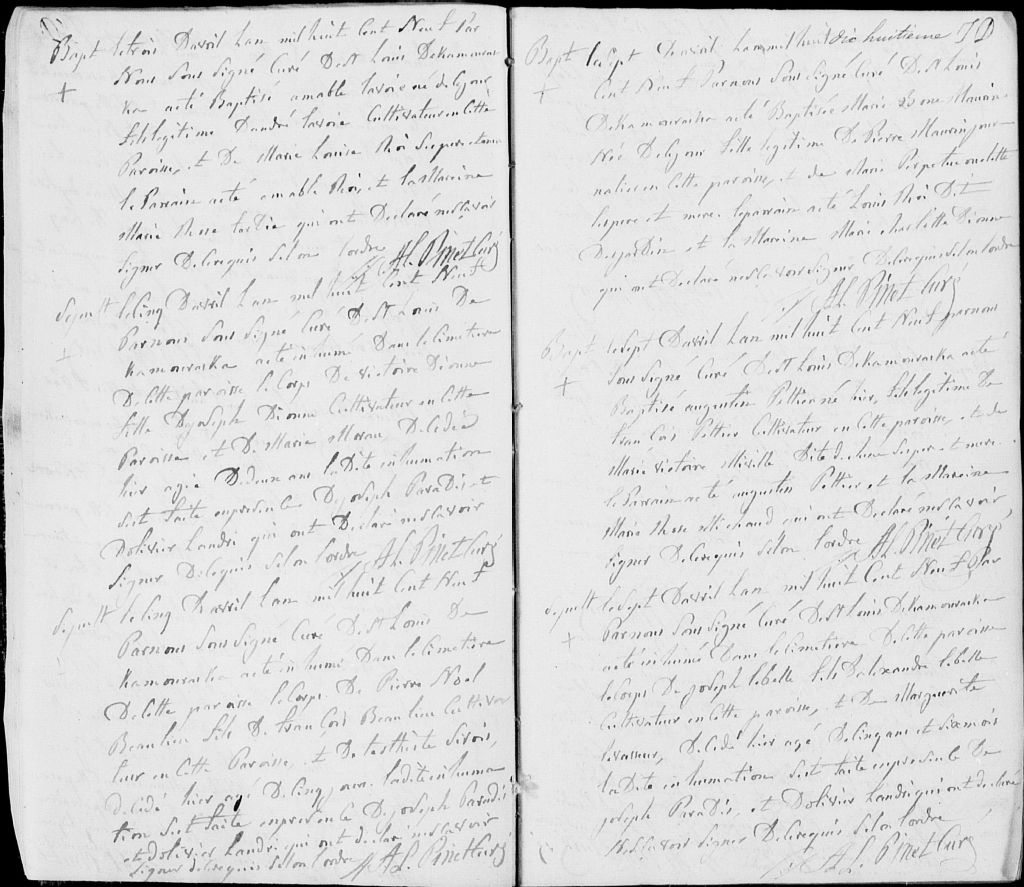 Bapt le trois Davril Lan mil huit Cent Neuf Par
+ Nous Sous Signé Curé De St Louis Dekamouras
ka acté Baptisé amable Lavoie né de Cejour
fils legitime Dandré Lavoie Cultivateur en Cette
Paroisse, et De Marie Louise Roi Ses pere et mere
le Parrain acté amable Roi, et la Mareine
Marie Rose qui ont Declaré ne Scavoir
Signer De Cerequis Selon lordre AL. Pinet Curé
Sepult le Cinq Davril Lan mil huit Cent Neuf
+ Parnous Sous Signé Curé De St Louis De
Kamouraska acté inhumé Dans le Cimetiere
De Cette paroisse le Corps De victoire Dionne
fille De joseph Dionne Cultivateur en Cette
Paroisse et De Marie Morau Decedée
hier agée De deux ans ladite inhumation
Sest faite en presence De joseph Paradis et
Dolivier Landri qui ont Declaré ne Scavoir
Signer De Cequis Selon lordre AL. Pinet Curé
Sepult le Cinq Davril Lan mil huit Cent Neuf
Parnous Sous Signé Curé De St Louis De
Kamouraska acté inhumé Dans le Cimetiere
De Cette paroisse le Corps De Pierre Noel
Beaulieu fils De francois Beaulieu Cultiva
teur en Cette Paroisse, et De Sirois,
decédé hier agé De Cinq, ladite inhuma
tion Sest faite en presence De joseph Paradis
et dolivier Landri qui ont declaré ne Scavoir
Signer de Cerequis Selon lordre AL. Pinet Curé
dix huitieme
Bapt le Sept Davril Lan mil huit
+ Cent Neuf Parnous Sous Signé Curé De St Louis
Dekamouraska acté Baptisée Marie Maurin
Née De Cejour fille legitime De Pierre Maurin jour
nalier en Cette paroisse, et de Marie Perpetue ouelette
Ses pere et mere. le parrain acté Louis Roi Dit
Desjardin et la Mareine Marie charlotte Dionne
qui ont Declaré ne Scavoir Signer De Cerequis Selon lordre
AL. Pinet Curé
Bapt le Sept Davril Lan mil huit Cent Neuf parnous
+ Sous Signé Curé De St Louis Dekamouraska acté
Baptisé augustin Peltier né hier, fils legitime De
francois Peltier Cultivateur en Cette paroisse, et de
Marie victoire Miville Dite dechene Ses pere et mere.
le Parrain acté augustin Peltier et la Mareine
Marie Rose Michaud qui ont Declaré ne Scavoir
Signer De Cerequis Selon lordre AL. Pinet Curé
Sepult le Sept Davril Lan mil huit Cent Neuf Par
+ Parnous Sous Signé Curé De St Louis Dekamouraska
acté inhumé Dans le Cimetiere De Cette paroisse
le Corps De joseph lebelle fils Dalexandre lebelle
Cultivateur en Cette paroisse, et De Marguerite
levasseur, Decédé hier agé De Cinq ans et Six mois
ladite inhumation Sest faite en presence De
joseph Paradis, et Dolivier Landri qui ont declaré
ne Scavoir Signer De Cerequis Selon lordre
AL. Pinet Curé